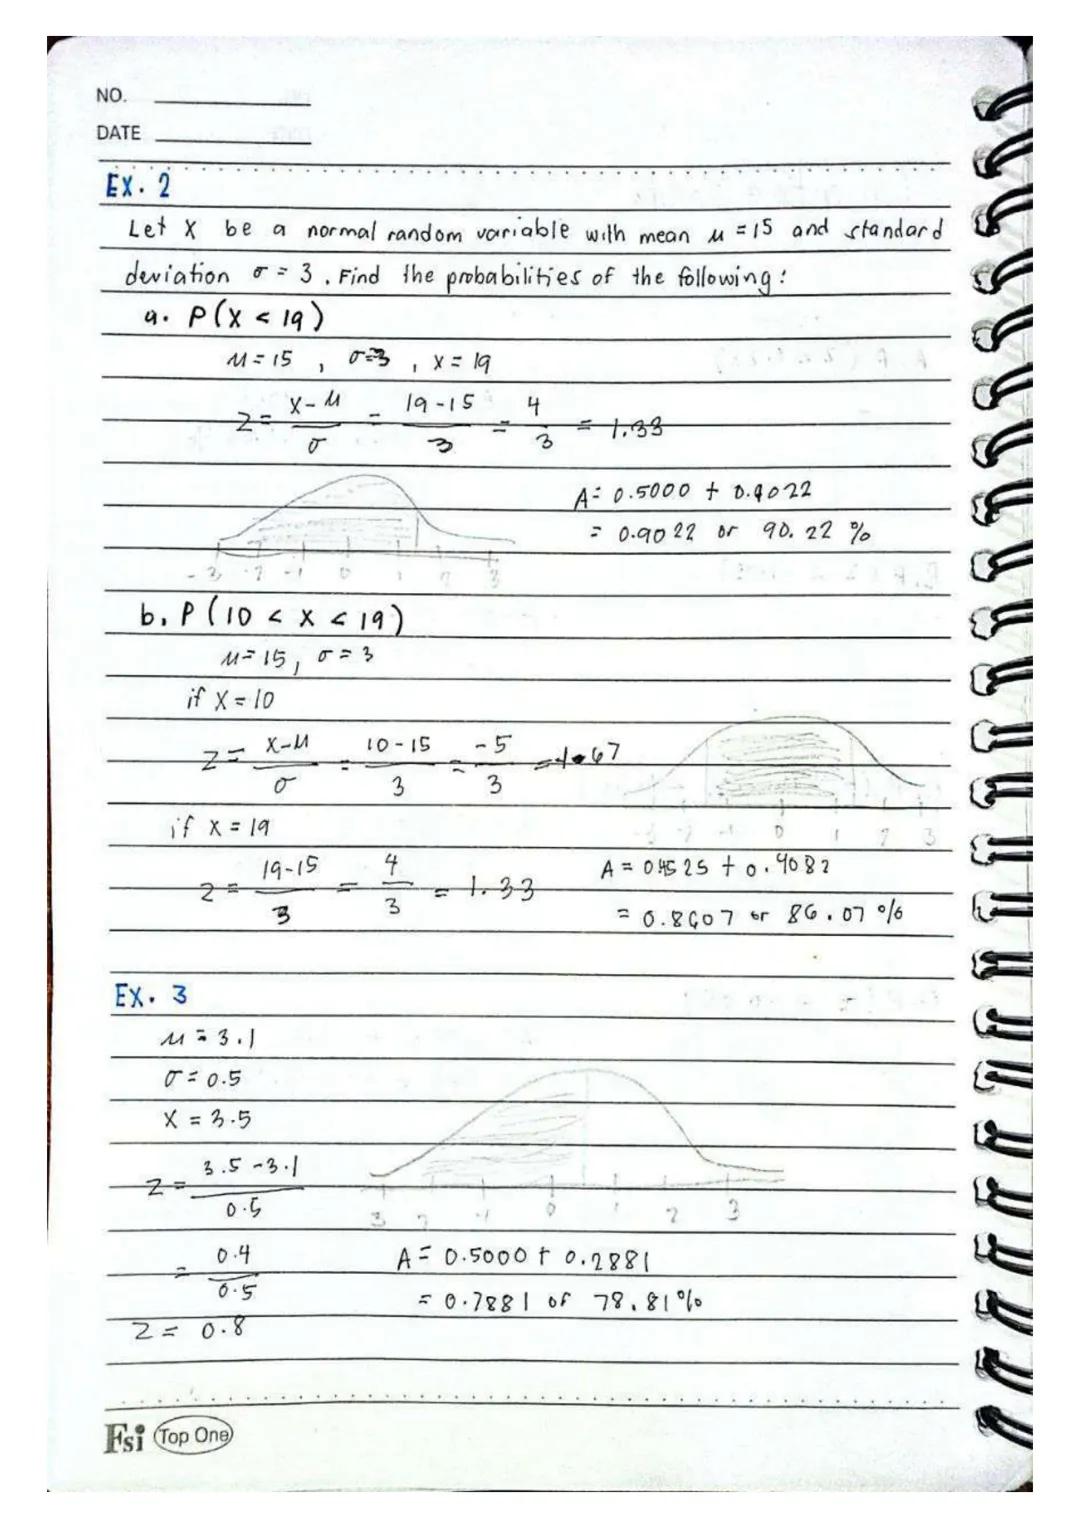 NO.
DATE
EX. 2
Let X be a normal random variable with mean μ = 15 and standard
deviation σ = 3. Find the probabilities of the following:
a. P(X < 19)
μ = 15, σ=3, X = 19
Z = X-μ/σ = 19-15/3 = 4/3 = 1.33
A = 0.5000 + 0.4022
= 0.9022 or 90.22 %
-3 -2 -1 0 1 2 3
b. P(10 < X < 19)
μ = 15, σ = 3
if X = 10
Z = X-μ/σ = 10-15/3 = -5/3 = -1.67
-3 -2 -1 0 1 2 3
if X = 19
Z = 19-15/3 = 4/3 = 1.33
A = 0.4525 + 0.4082
= 0.8607 or 86.07 %
EX. 3
μ = 3.1
σ = 0.5
X = 3.5
Z = 3.5-3.1/0.5
3 2 -1 0 1 2 3
= 0.4/0.5
A = 0.5000 + 0.2881
= 0.7881 or 78.81%
Z = 0.8
Fsi Top One